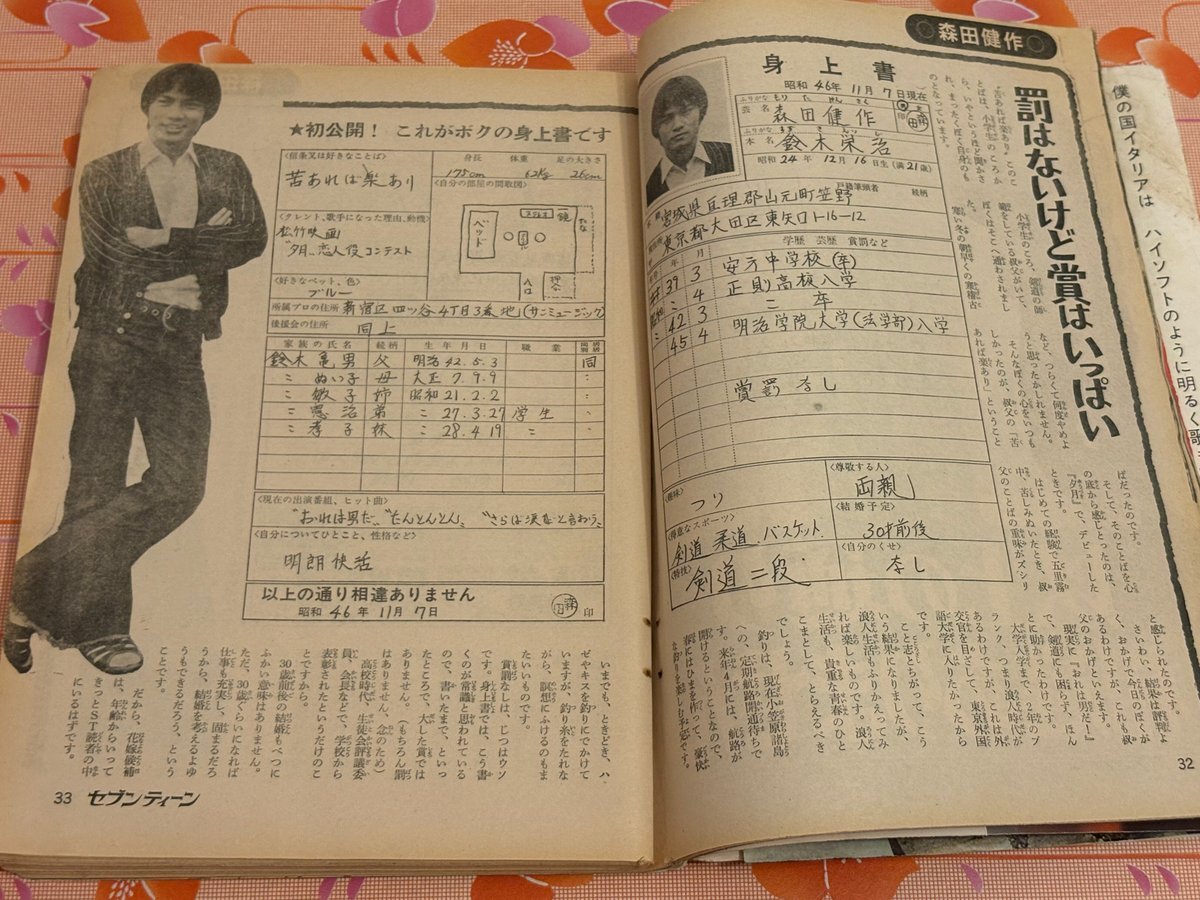 森田健作
罰はないけど賞はいっぱい
身上書
昭和46年11月7日現在
ふりがな もりたけんさく
芸名 森田健作
ふりがな
本名 鈴木栄治
昭和24年12月16日生(満21歳)
戸籍筆頭者 続柄
宮城県亘理郡山元町笠野
東京都大田区東矢口1-16-12
年 月 学歴 芸歴 賞罰など
39 3 安方中学校(卒)
〃 4 正則高校入学
42 3 〃 卒
45 4 明治学院大学(法学部)入学
賞罰 なし
〈趣味〉
つり
〈尊敬する人〉
両親
〈得意なスポーツ〉
剣道 柔道 バスケット
〈結婚予定〉
30才前後
〈特技〉
剣道二段
〈自分のくせ〉
なし
「苦あれば楽あり」このこ
とばは、小学生のころか
ら、いやというほど聞かさ
れ、まったくぼく自身のも
のとなっています。
小学生のころ、剣道の師
範をしている叔父がいて、
ぼくはそこへ通わされまし
た。
寒い冬の朝早くの寒稽古
など、つらくて何度やめよ
うと思ったかしれません。
そんなぼくの心をいつも
しかったのが、叔父の「苦
あれば楽あり」ということ
ばだったのです。
そして、そのことばを心
の底から感じとったのは、
『夕月』で、デビューした
ときです。
はじめての経験で五里霧
中、苦しみぬいたとき、叔
父のことばの重味がズシリ
と感じられたのです。
さいわい、結果は評判よ
く、おかげで今日のぼくが
あるわけですが、これも叔
父のおかげといえます。
現実に『おれは男だ！』
で、剣道にも困らず、ほん
とに助かったわけです。
大学入学まで、2年のブ
ランク、つまり浪人時代が
あるわけですが、これは外
交官を目ざして、東京外国
語大学に入りたかったから
です。
こと志とちがって、こう
いう結果になりましたが、
浪人生活もふりかえってみ
れば楽しいものです。浪人
生活も、貴重な青春のひと
こまとして、とらえるべき
でしょう。
釣りは、現在小笠原諸島
への、定期航路開通待ちで
す。来年4月には、航路が
開けるということなので、
春にはひまを作って、豪快
な釣りを楽しむ予定です。
32
僕の国イタリアは ハイソフトのように明るく歌
★初公開！ これがボクの身上書です
〈信条又は好きなことば〉
苦あれば楽あり
身長 体重 足の大きさ
175cm 62kg 26cm
〈自分の部屋の間取図〉
ベッド
ステレオ
鏡
たな
入口
〈タレント、歌手になった理由、動機〉
松竹映画
"夕月"恋人役コンテスト
〈好きなペット、色〉
ブルー
所属プロの住所 新宿区四ッ谷4丁目3番地(サンミュージック)
後援会の住所 同上
家族の氏名 続柄 生年月日 職業 同居 別居
鈴木亀男 父 明治42.5.3 同
〃 ぬい子 母 大正7.9.9 〃
〃 敏子 姉 昭和21.2.2 〃
〃 憲治 弟 〃 27.3.27 学生 〃
〃 孝子 妹 〃 28.4.19 〃 〃
〈現在の出演番組、ヒット曲〉
"おれは男だ" "たんとんとん" "さらば涙と言おう"
〈自分についてひとこと、性格など〉
明朗快活
以上の通り相違ありません
昭和46年11月7日
印
いまでも、ときどき、ハ
ゼやキスを釣りにでかけて
いますが、釣り糸をたれな
がら、瞑想にふけるのもま
たいいものです。
賞罰なしは、じつはウソ
です。身上書では、こう書
くのが常識と思われている
ので、書いたまで。といっ
たところで、大した賞では
ありません。(もちろん罰
はありません、念のため)
高校時代、生徒会評議委
員、会長などで、学校から
表彰されたというだけのこ
とですから。
30歳前後の結婚もべつに
ふかい意味はありません。
ただ、30歳ぐらいになれば
仕事も充実し、固まるだろ
うから、結婚を考えるよゆ
うもできるだろう、という
ことです。
だから、花嫁候補
は、年齢からいって
きっとST読者の中
にいるはずです。
33 セブンティーン